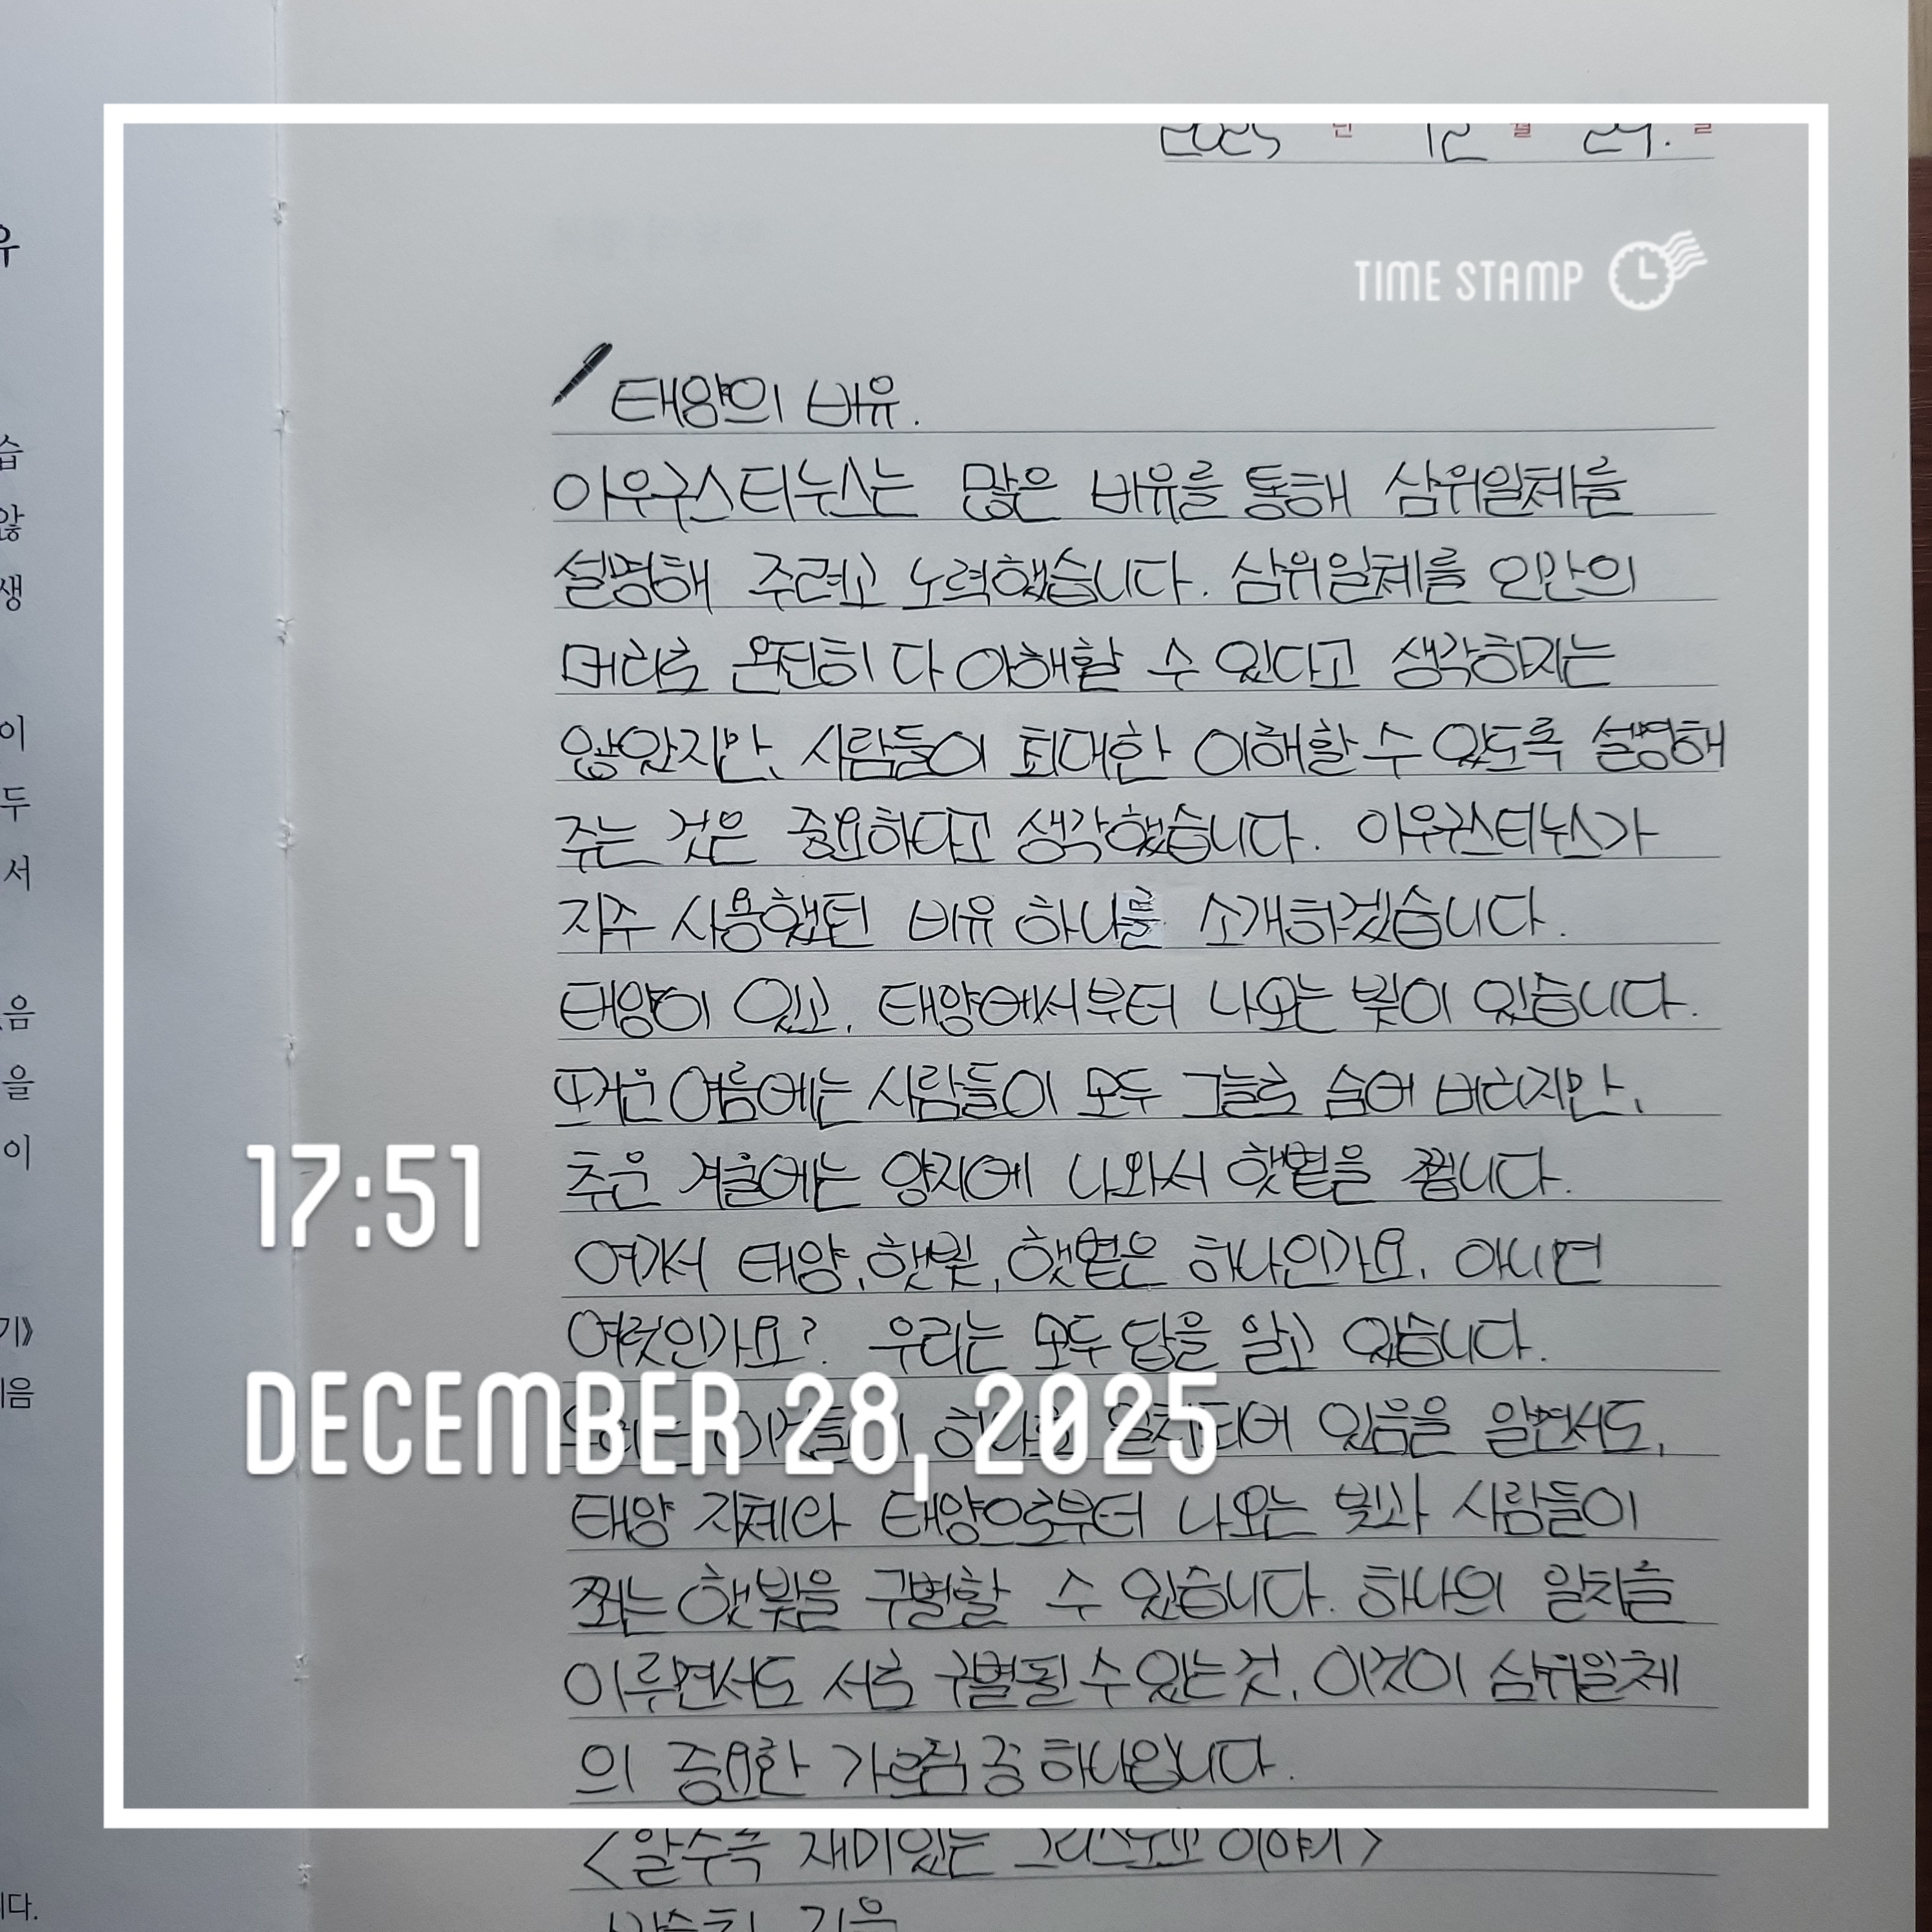 우
습
않
생
이
두
서
음
을
이
기》
음
다.
2025 년 12 월 29. 일
TIME STAMP
태양의 비유.
아우구스티누스는 많은 비유를 통해 삼위일체를
설명해 주려고 노력했습니다. 삼위일체를 인간의
머리로 온전히 다 이해할 수 있다고 생각하지는
않았지만, 사람들이 최대한 이해할 수 있도록 설명해
주는 것은 중요하다고 생각했습니다. 아우구스티누스가
자주 사용했던 비유 하나를 소개하겠습니다.
태양이 있고, 태양에서부터 나오는 빛이 있습니다.
뜨거운 여름에는 사람들이 모두 그늘로 숨어 버리지만,
추운 겨울에는 양지에 나와서 햇볕을 쬡니다.
여기서 태양, 햇빛, 햇볕은 하나인가요, 아니면
여럿인가요? 우리는 모두 답을 알고 있습니다.
우리는 이것들이 하나로 일치되어 있음을 알면서도,
태양 자체와 태양으로부터 나오는 빛과 사람들이
쬐는 햇빛을 구별할 수 있습니다. 하나의 일치를
이루면서도 서로 구별될 수 있는 것, 이것이 삼위일체
의 중요한 가르침 중 하나입니다.
<알수록 재미있는 그리스도교 이야기>
지음
17:51
DECEMBER 28, 2025